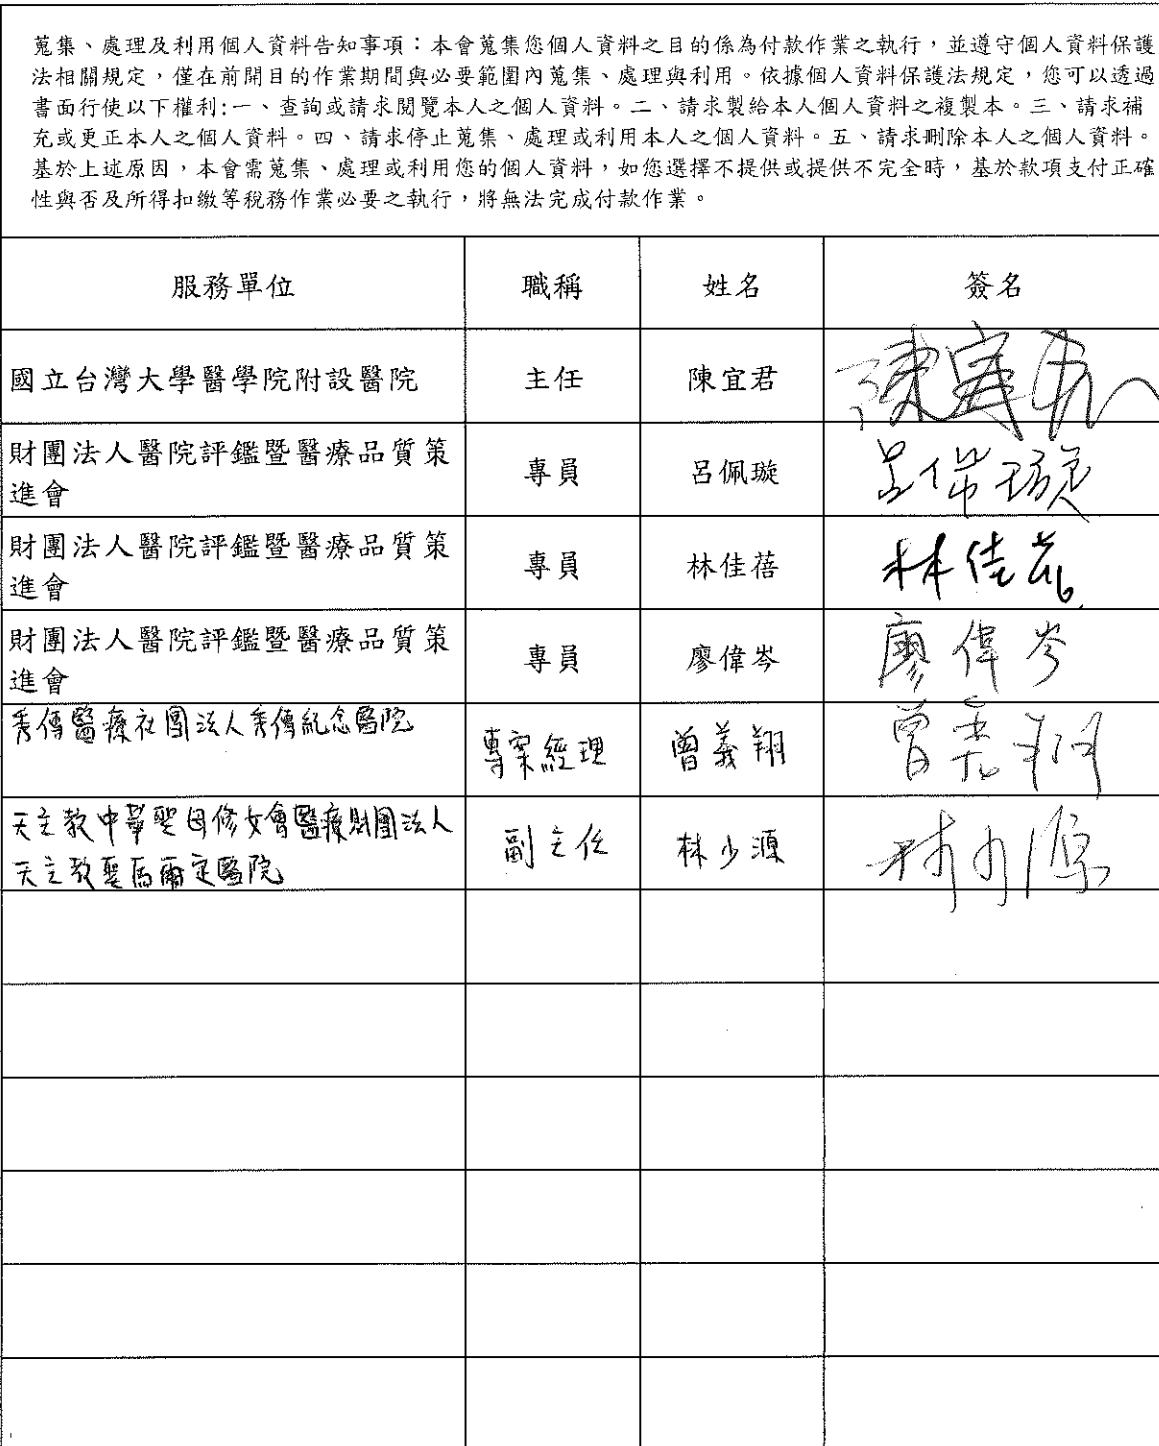 蒐集、處理及利用個人資料告知事項：本會蒐集您個人資料之目的係為付款作業之執行，並遵守個人資料保護
法相關規定，僅在前開目的作業期間與必要範圍內蒐集、處理與利用。依據個人資料保護法規定，您可以透過
書面行使以下權利:一、查詢或請求閱覽本人之個人資料。二、請求製給本人個人資料之複製本。三、請求補
充或更正本人之個人資料。四、請求停止蒐集、處理或利用本人之個人資料。五、請求刪除本人之個人資料。
基於上述原因，本會需蒐集、處理或利用您的個人資料，如您選擇不提供或提供不完全時，基於款項支付正確
性與否及所得扣繳等稅務作業必要之執行，將無法完成付款作業。
服務單位 職稱 姓名 簽名
國立台灣大學醫學院附設醫院 主任 陳宜君 陳宜君
財團法人醫院評鑑暨醫療品質策
進會 專員 呂佩璇 呂佩璇
財團法人醫院評鑑暨醫療品質策
進會 專員 林佳蓓 林佳蓓
財團法人醫院評鑑暨醫療品質策
進會 專員 廖偉岑 廖偉岑
秀傳醫療社團法人秀傳紀念醫院 專案經理 曾義翔 曾義翔
天主教中華聖母修女會醫療財團法人
天主教聖馬爾定醫院 副主任 林少源 林少源